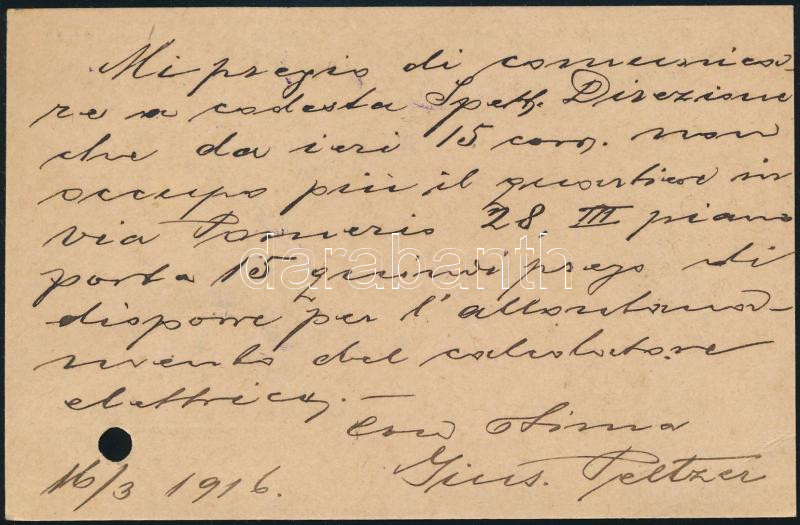 Mi pregio di comunica-
re a codesta Spett. Direzione
che da ieri 15 corr. non
occupo più il quartiere in
via Pomerio 28. III piano
porta 15 quindi prego di
disporre per l'allontana-
mento del calcolatore
elettrico. —
Con stima
Gius. Peltzer
16/3 1916.
darabanth